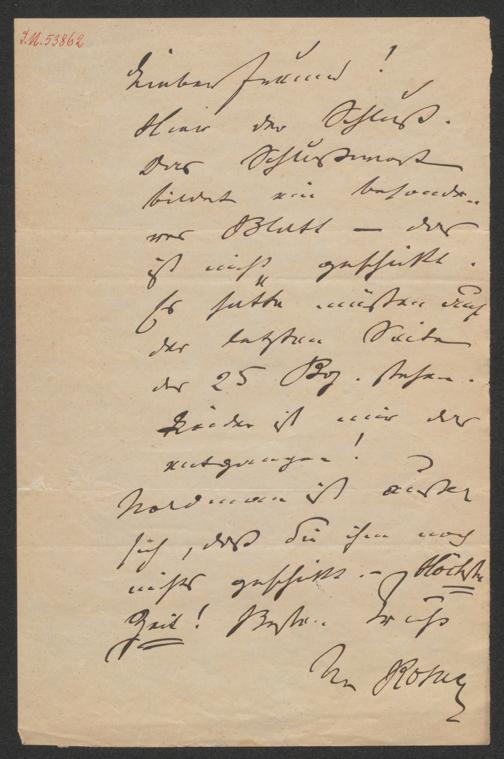 J.N. 53862
Lieber Freund!
Hier der Schluß.
Das Schlußwort
bildet ein besonde-
res Blatt — das
ist nicht geschickt.
Es hätte müßen auf
der letzten Seite
des 25 Bog. stehen.
Leider ist mir das
entgangen!
Nordmann ist außer
sich, daß Sie ihm noch
nichts geschickt. — Höchste
Zeit! Besten Gruß
Ihr Rosner